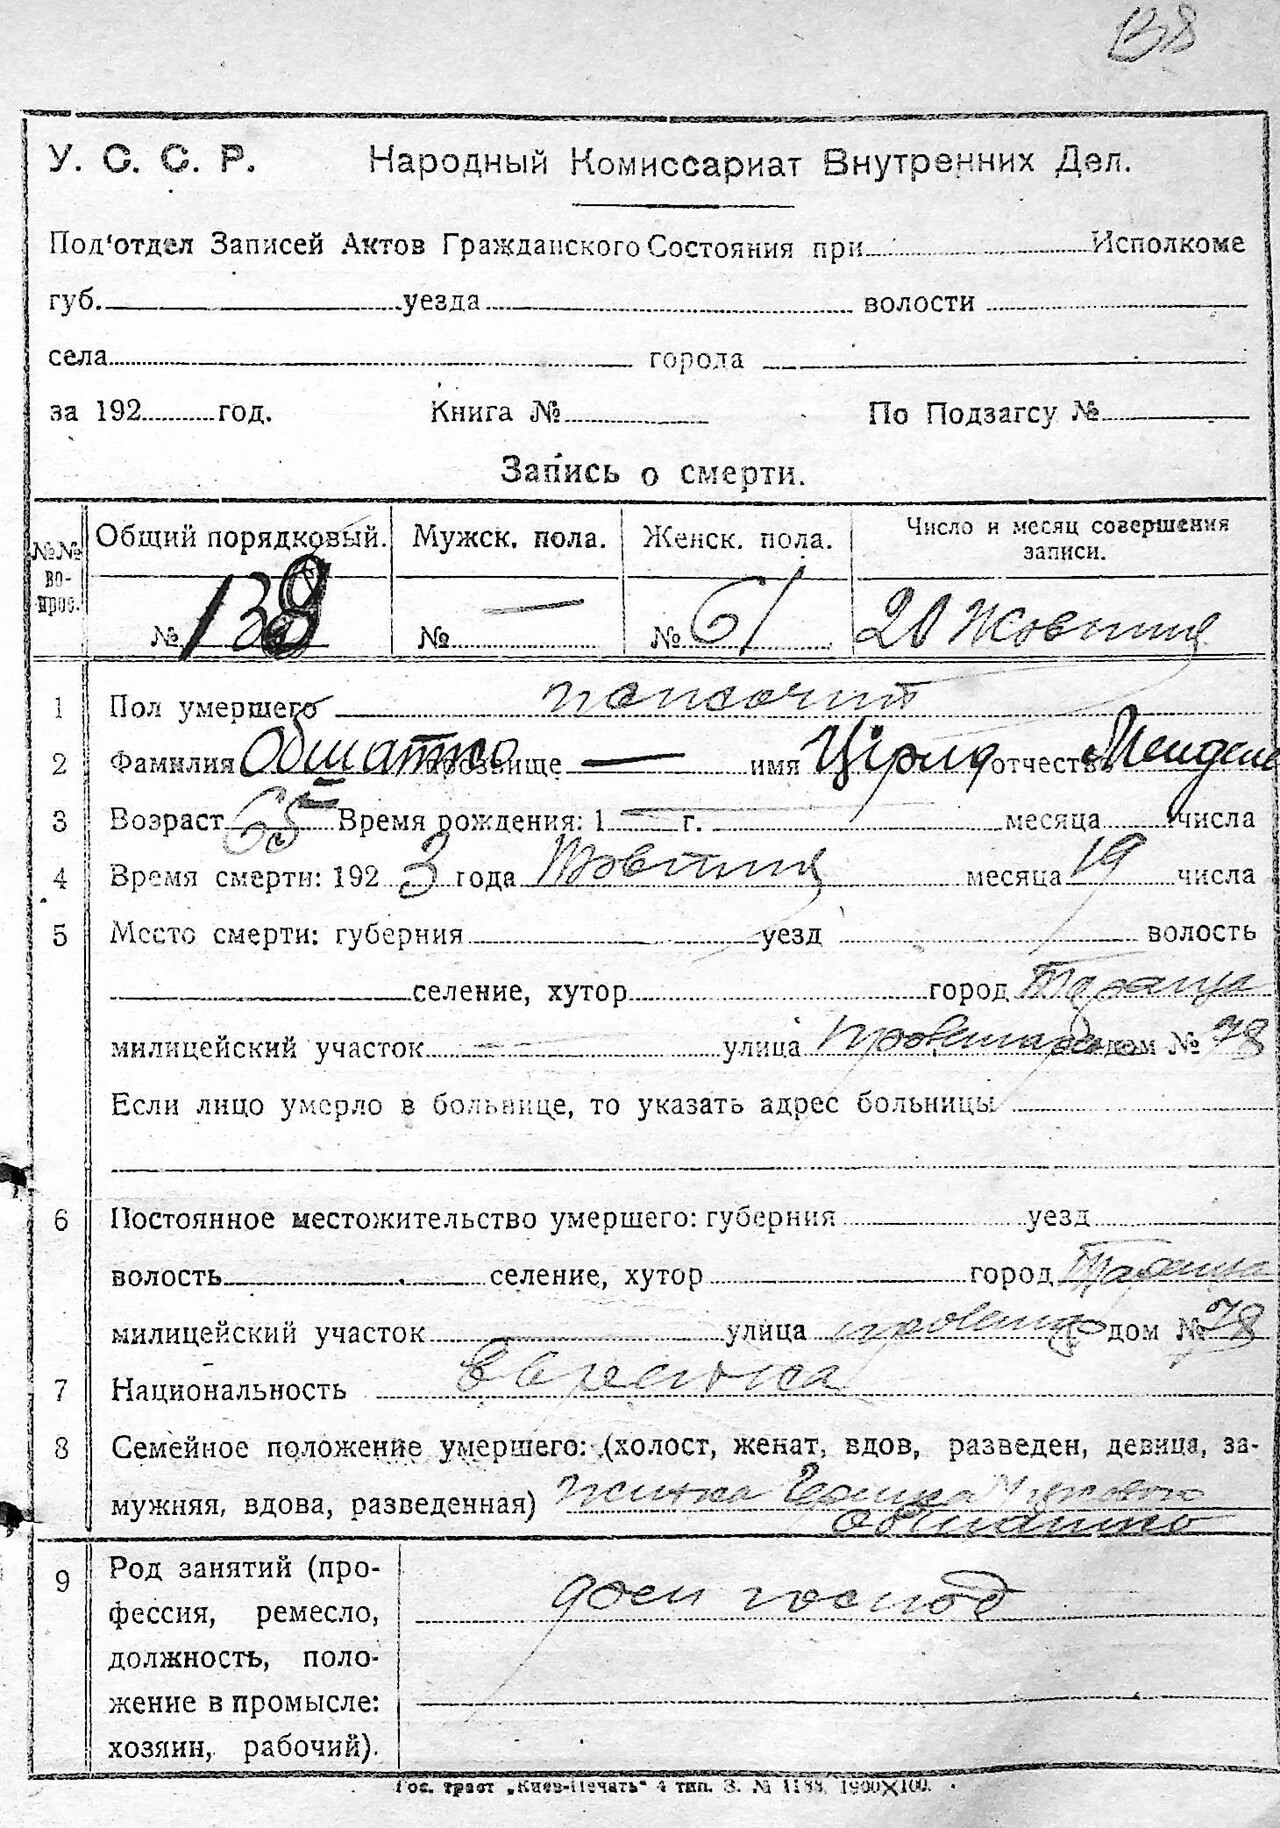 138
У. С. С. Р. Народный Комиссариат Внутренних Дел.
Под'отдел Записей Актов Гражданского Состояния при Исполкоме
губ. уезда волости
села города
за 192 год. Книга № По Подзагсу №
Запись о смерти.
№№ вопрос. Общий порядковый. Мужск. пола. Женск. пола. Число и месяц совершения записи.
№ 138 № — № 61 20 Жовтня
1 Пол умершего
2 Фамилия Обшатко прозвище — имя Цірля отчество
3 Возраст 65 Время рождения: 1 — г. месяца числа
4 Время смерти: 192 3 года Жовтня месяца 19 числа
5 Место смерти: губерния уезд волость
селение, хутор город Тараща
милицейский участок — улица дом № 78
Если лицо умерло в больнице, то указать адрес больницы
6 Постоянное местожительство умершего: губерния уезд
волость селение, хутор город Тараща
милицейский участок улица дом № 78
7 Национальность Еврейка
8 Семейное положение умершего: (холост, женат, вдов, разведен, девица, за-
мужняя, вдова, разведенная) жинка
Обшатко
9 Род занятий (про-
фессия, ремесло,
должность, поло-
жение в промысле:
хозяин, рабочий).
дом господ
Гос. трест „Киев-Печать" 4 тип. З. № 1188. 1900×100.